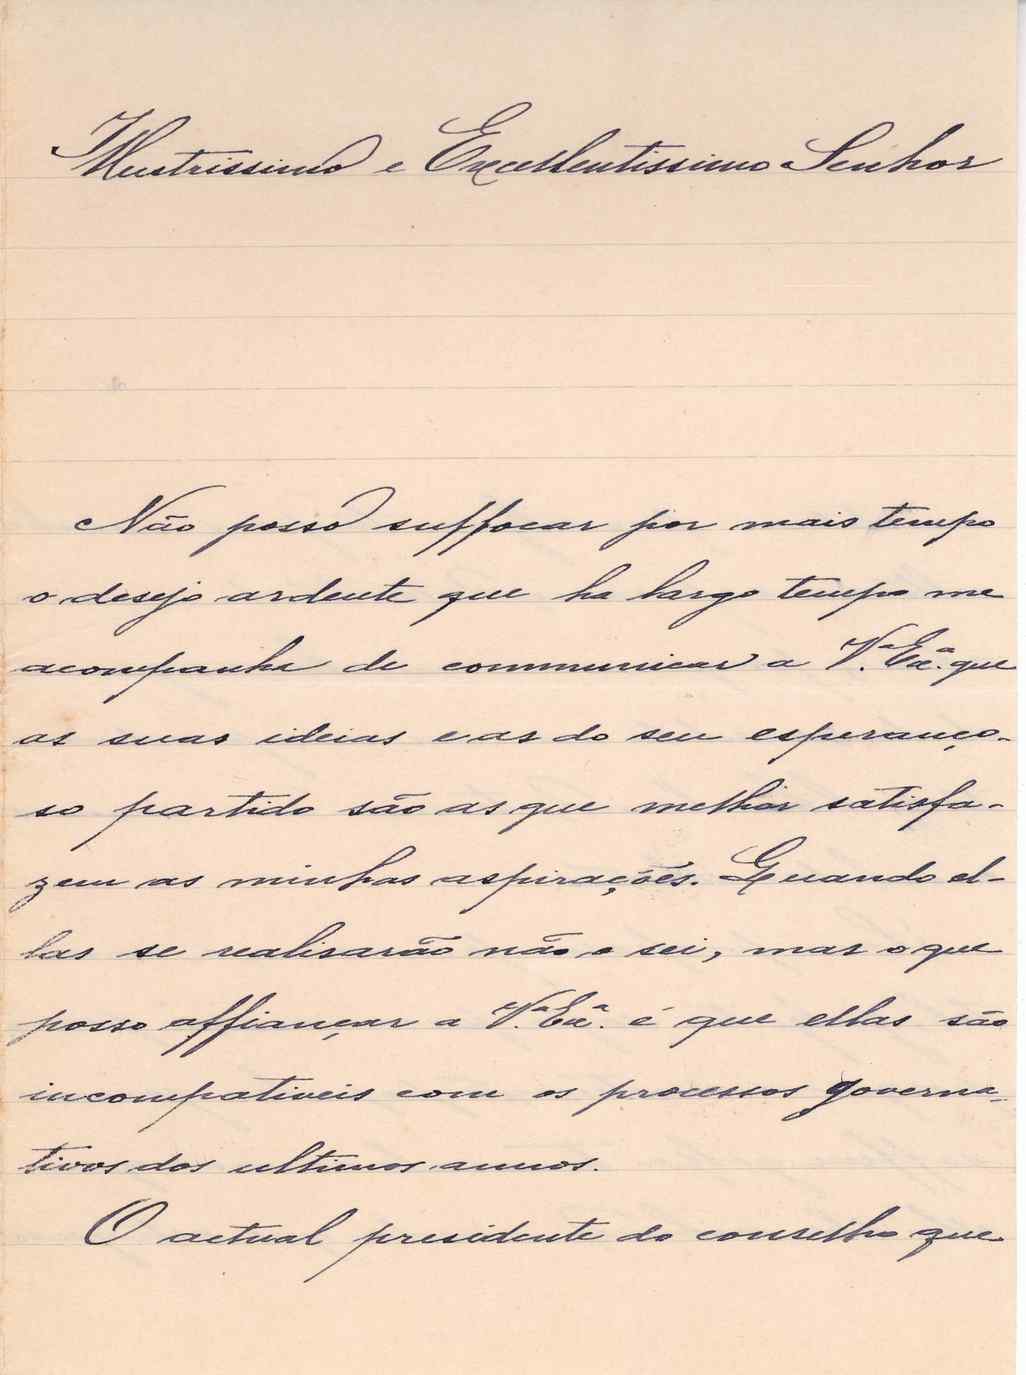 Illustrissimo e Excellentissimo Senhor
Não posso suffocar por mais tempo
o desejo ardente que ha largo tempo me
acompanha de communicar a V.ª Ex.ª que
as suas ideias e as do seu esperanço-
so partido são as que melhor satisfa-
zem as minhas aspirações. Quando el-
las se realisarão não o sei, mas o que
posso affiançar a V.ª Ex.ª é que ellas são
incompativeis com os processos governa-
tivos dos ultimos annos.
O actual presidente do conselho que